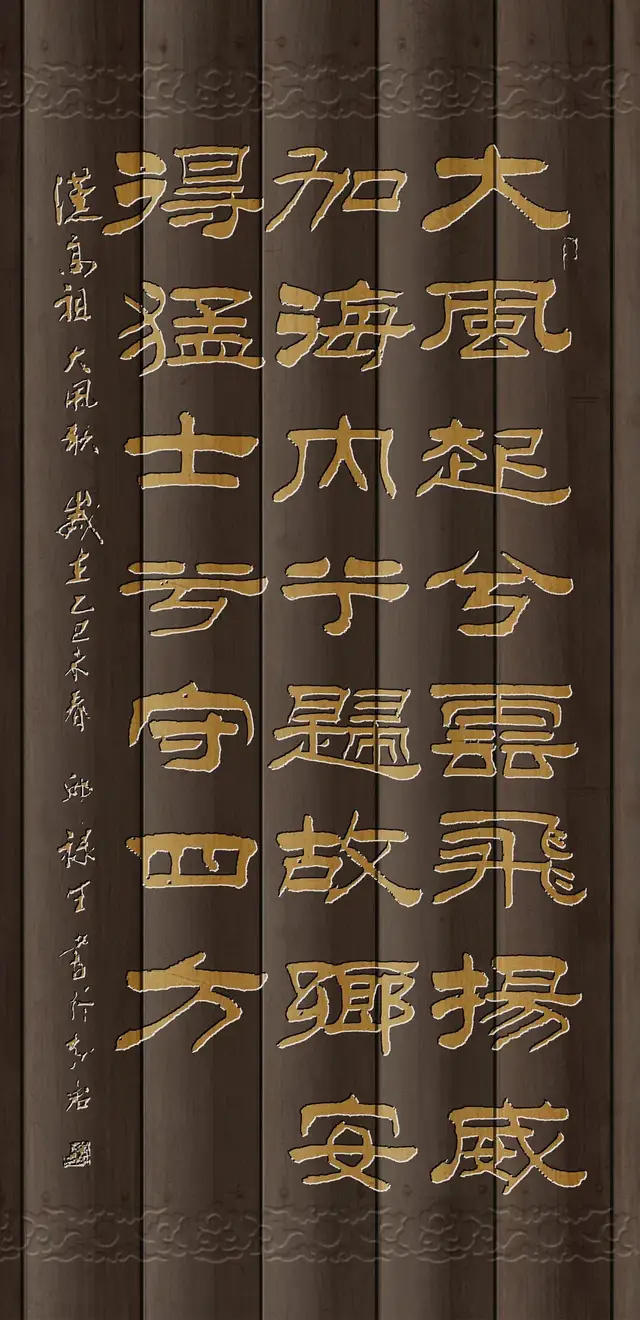 大風起兮雲飛揚威
加海内兮歸故鄉安
得猛士兮守四方
漢高祖大風歌 歲在乙巳末春 祿生書於